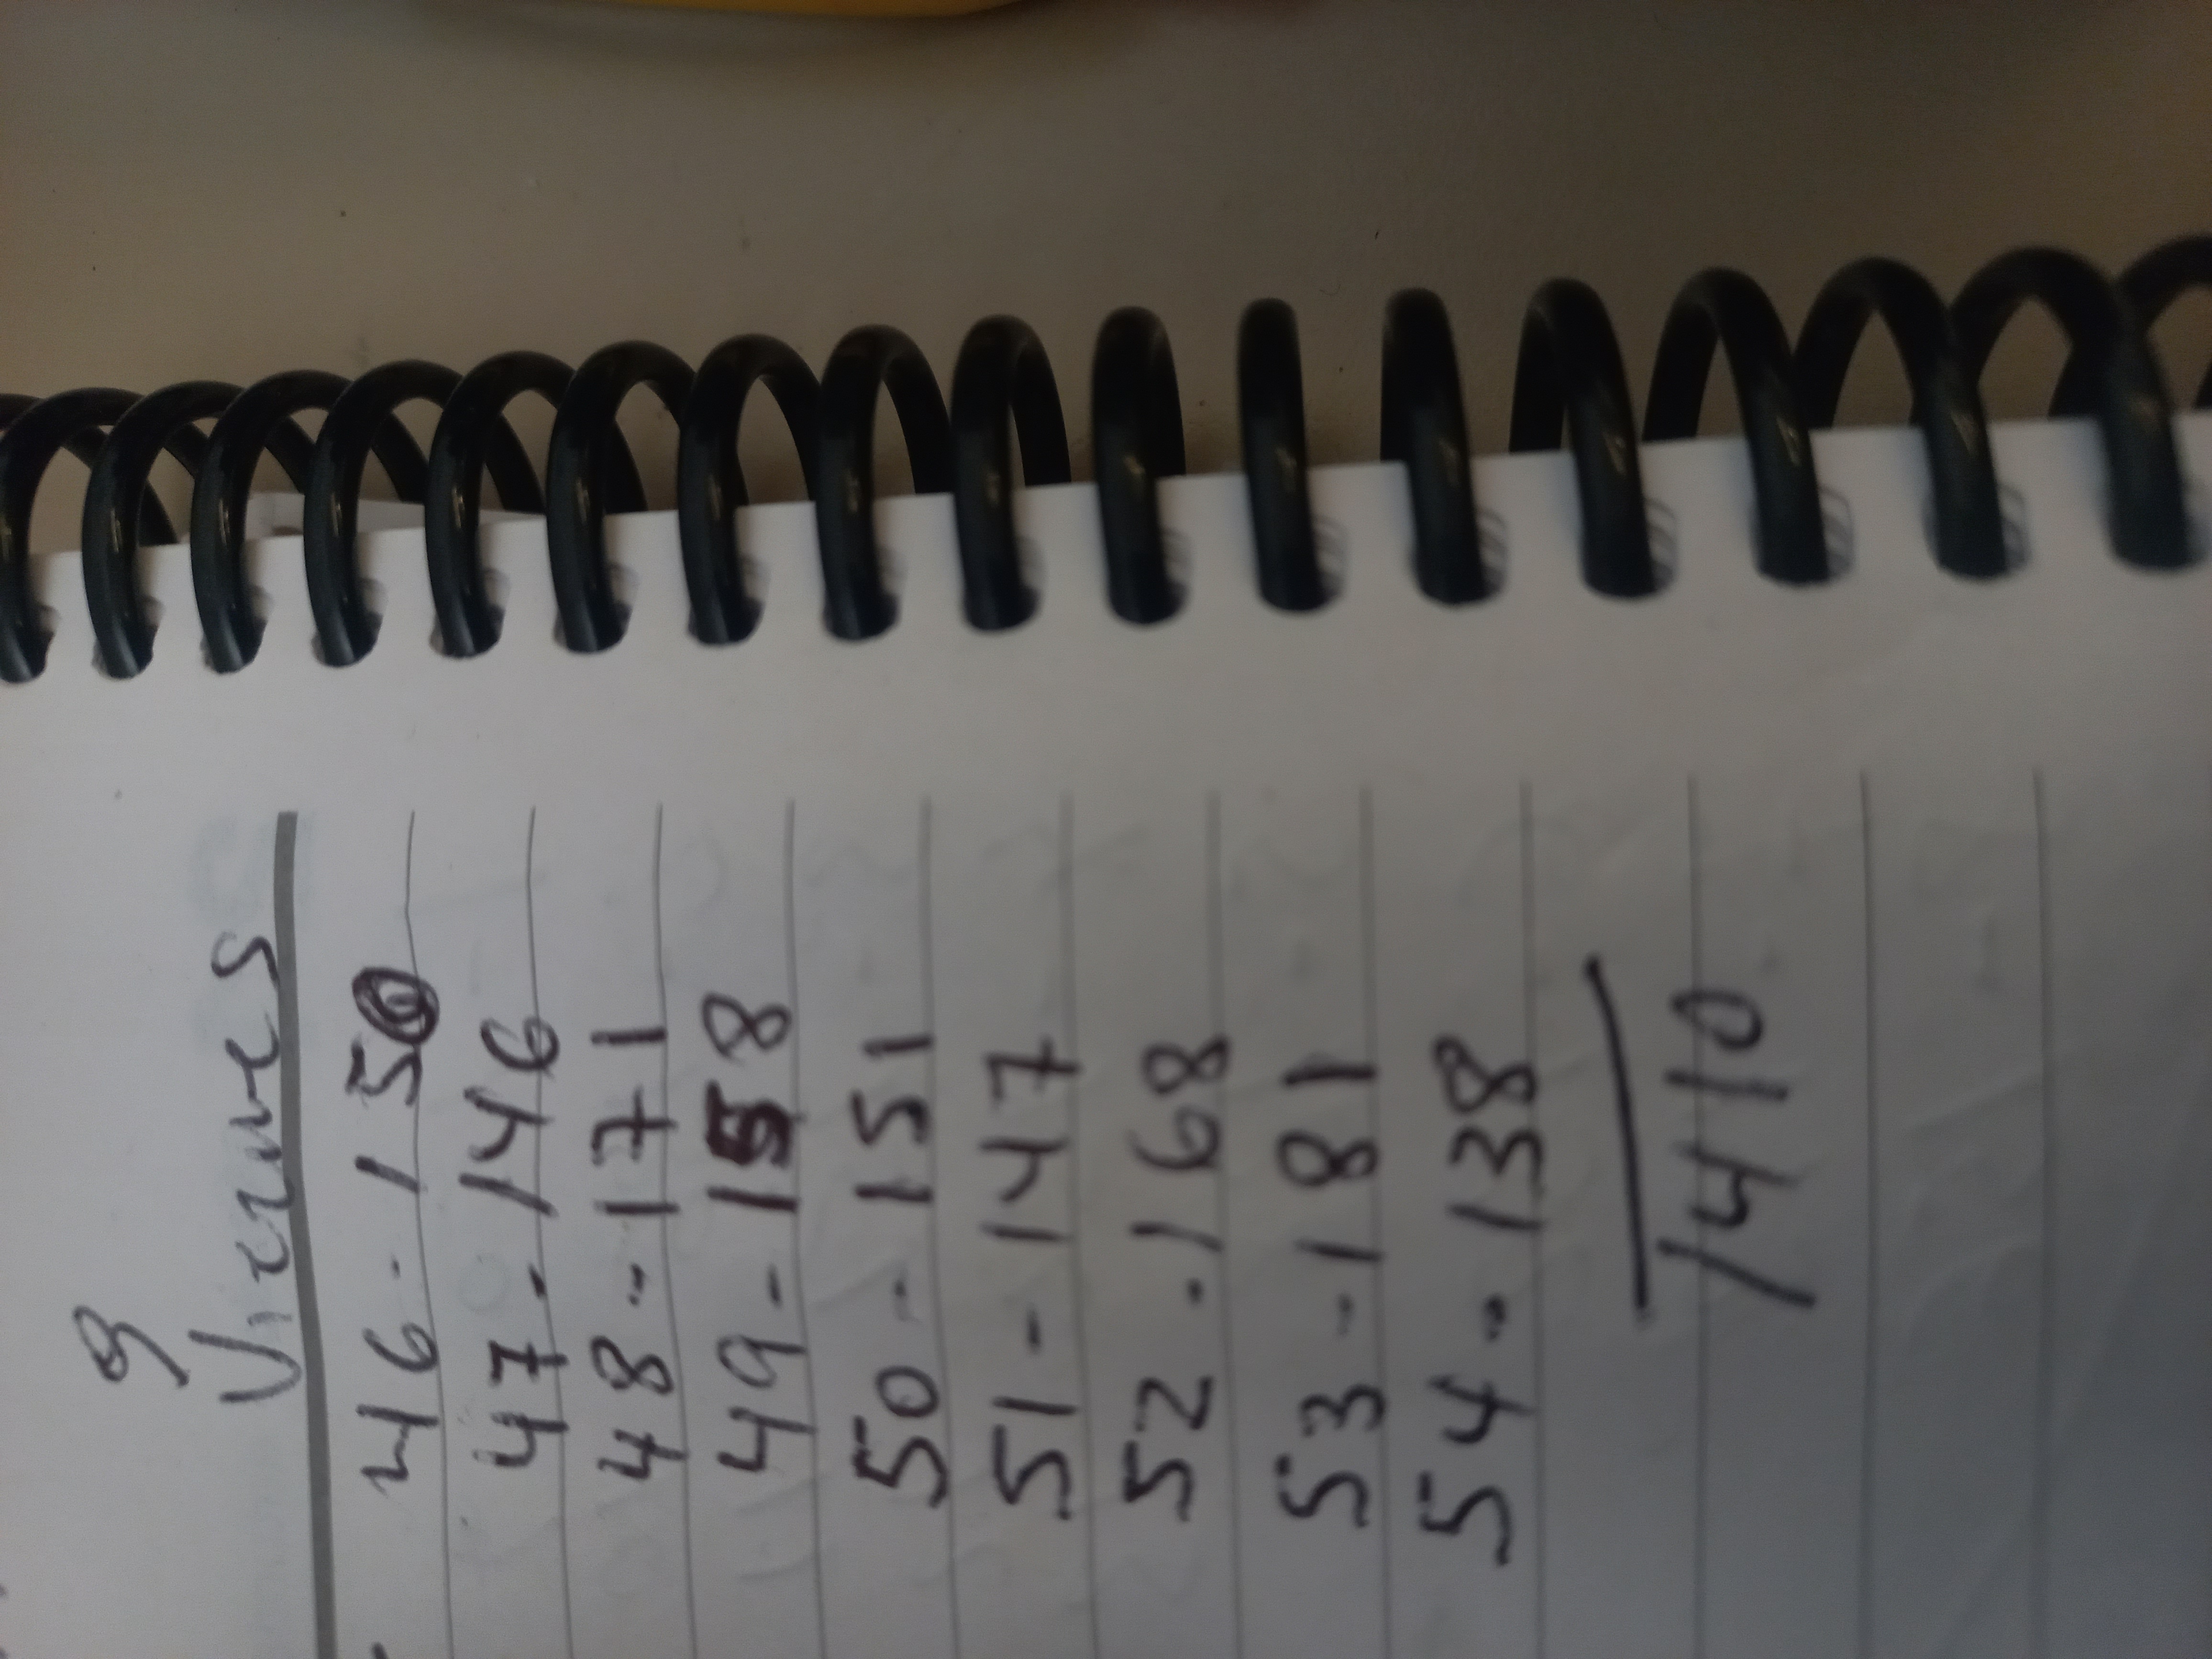 9
Viernes
46 - 150
47 - 146
48 - 171
49 - 158
50 - 151
51 - 147
52 - 168
53 - 181
54 - 138
1410